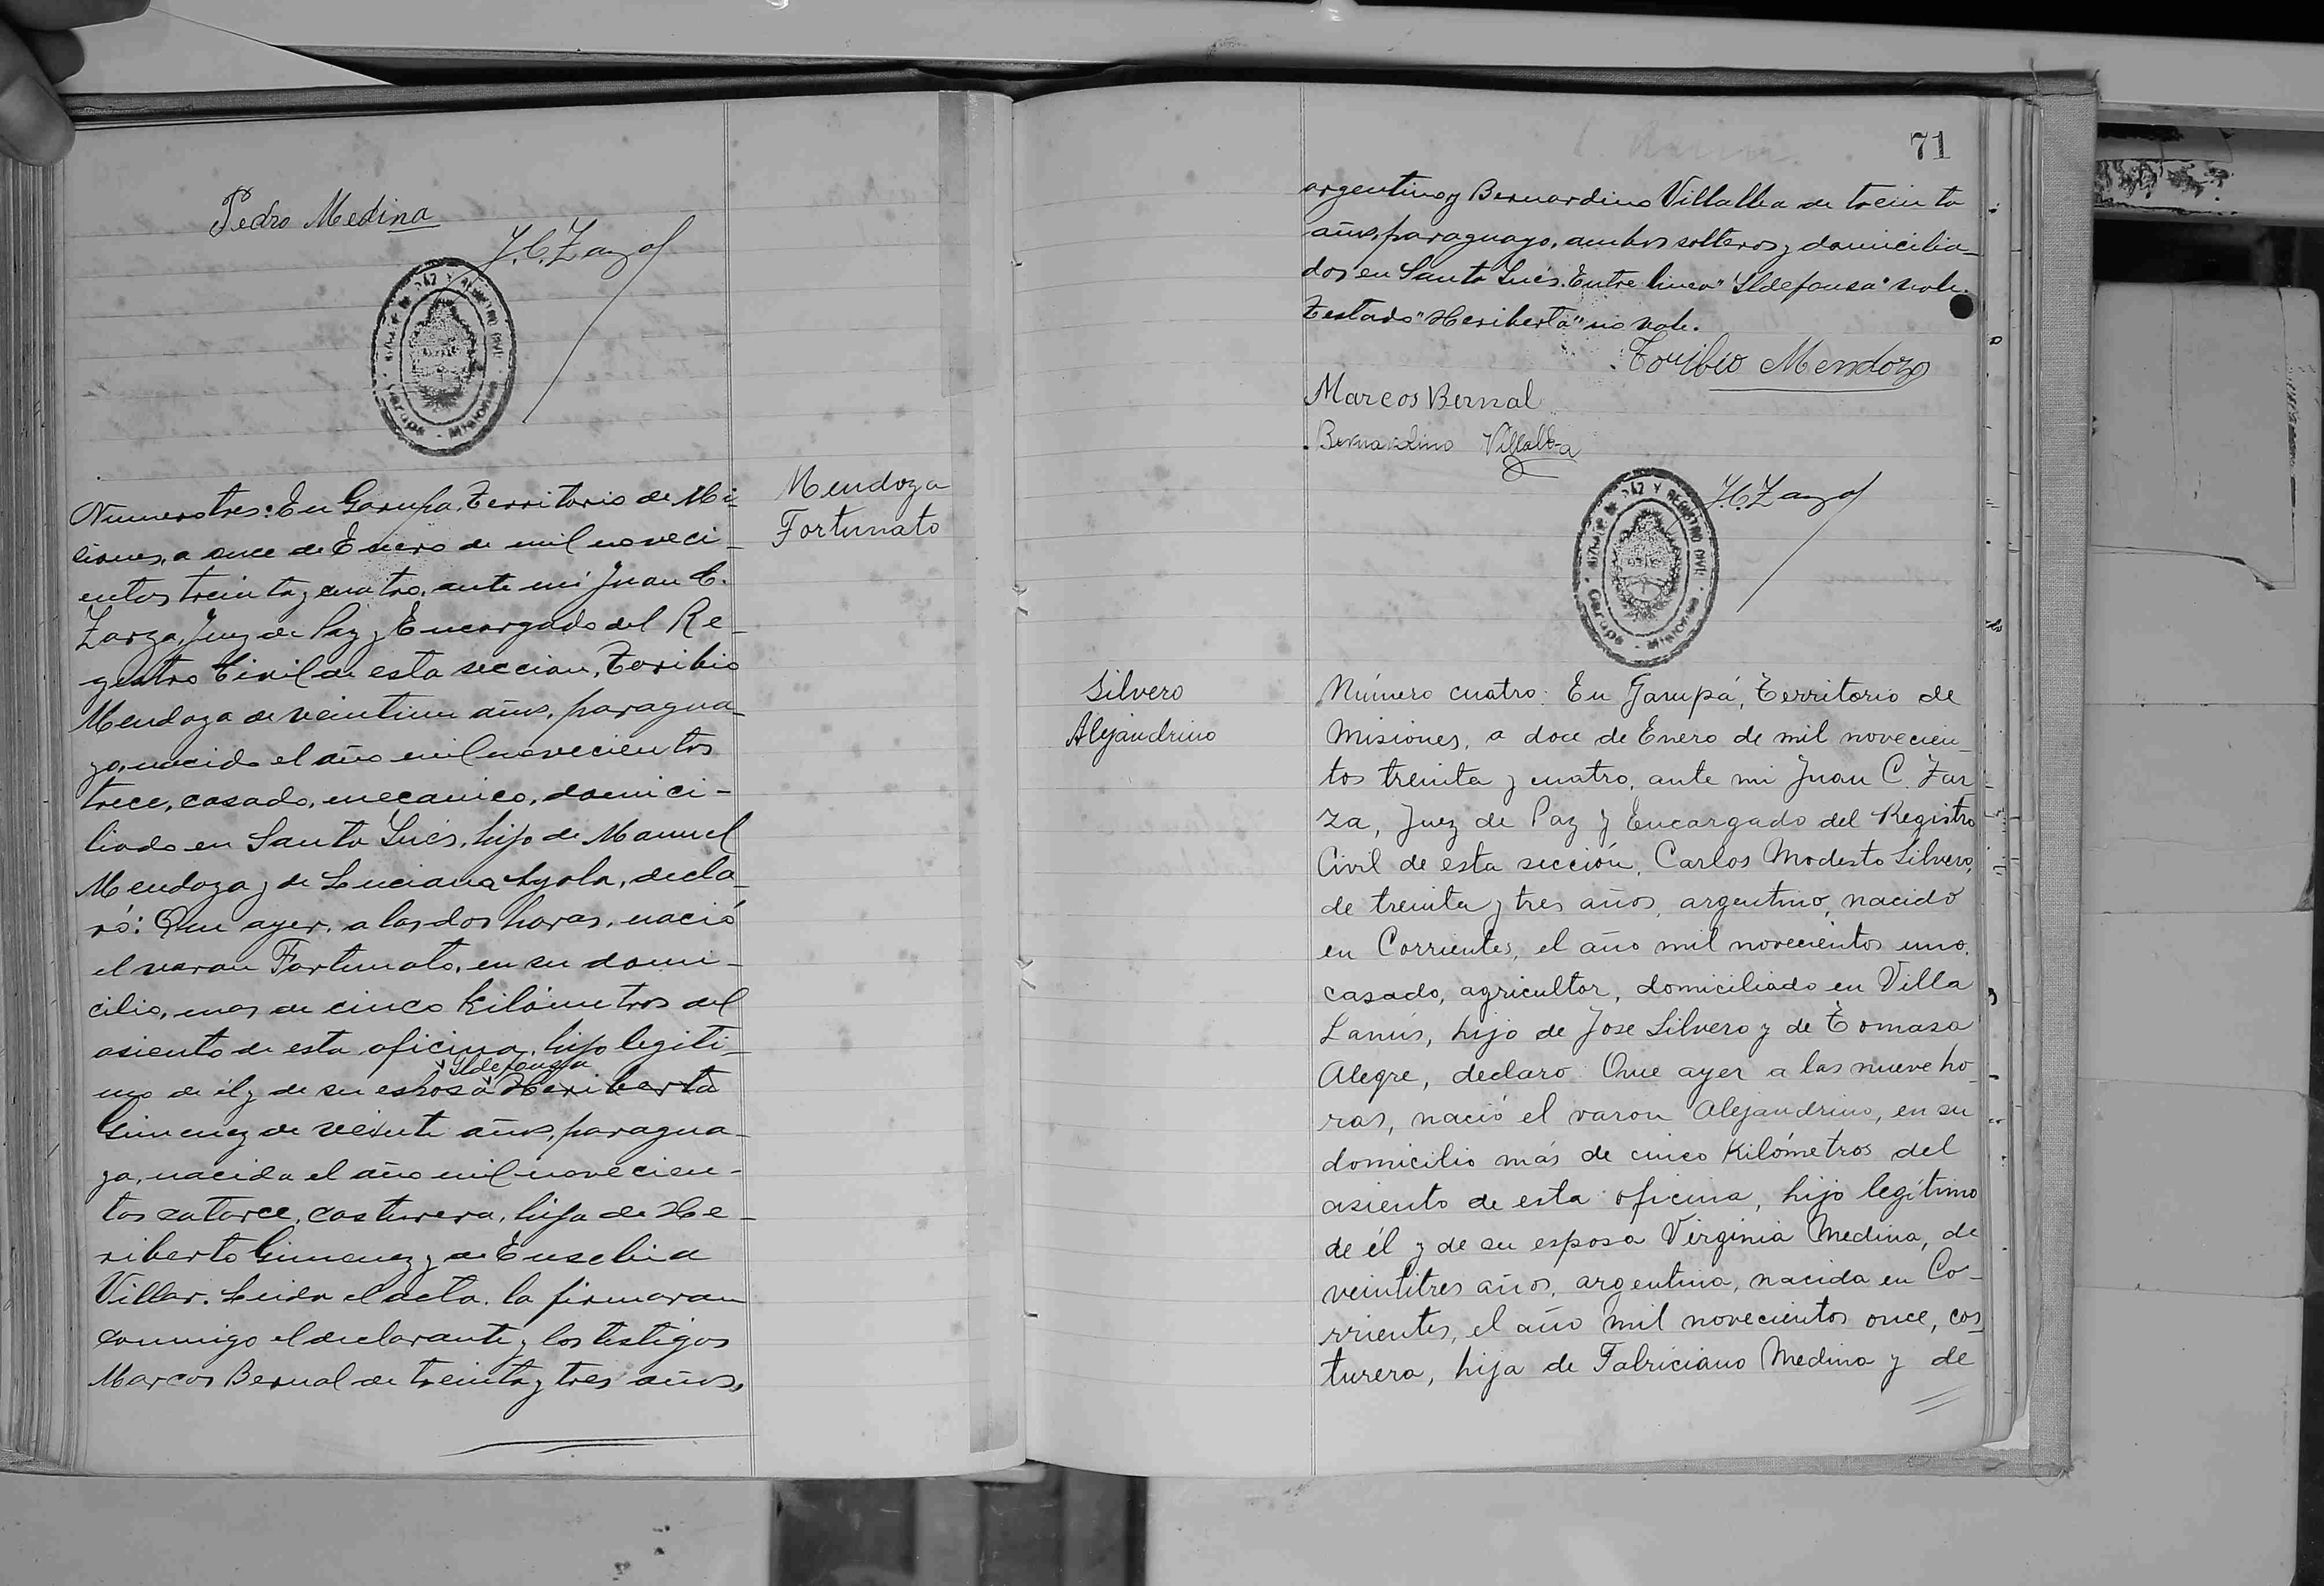 Pedro Medina
J.C. Zarza
JUZGADO DE PAZ Y REGISTRO CIVIL
Garupá - Misiones
Mendoza
Fortunato
Numero tres: En Garupa, Territorio de Mi-
siones, a once de Enero de mil noveci-
entos treinta y cuatro, ante mi Juan C.
Zarza, Juez de Paz y Encargado del Re-
gistro Civil de esta seccion, Toribio
Mendoza de veintiun años, paragua-
yo, nacido el año mil novecientos
trece, casado, mecanico, domici-
liado en Santa Inés, hijo de Manuel
Mendoza y de Luciana Ayala, decla-
ró: Que ayer, a las dos horas, nació
el varon Fortunato, en su domi-
cilio, mas de cinco kilómetros del
asiento de esta oficina, hijo legiti-
Ildefonsa
mo de él y de su esposa Heriberta
Gimenez de veinte años, paragua-
ya, nacida el año mil novecien-
tos catorce, costurera, hija de He-
riberto Gimenez y de Eusebia
Villar. Leida el acta, la firmaron
conmigo el declarante y los testigos
Marcos Bernal de treinta y tres años,
71
argentino y Bernardino Villalba de treinta
años, paraguayo, ambos solteros y domicilia-
dos en Santa Inés. Entre linea "Ildefonsa" vale.
Testado "Heriberta" no vale.
Toribio Mendoza
Marcos Bernal
Bernardino Villalba
J.C. Zarza
JUZGADO DE PAZ Y REGISTRO CIVIL
Garupá - Misiones
Silvero
Alejandrino
Número cuatro: En Garupá, Territorio de
Misiones, a doce de Enero de mil novecien-
tos treinta y cuatro, ante mi Juan C. Zar-
za, Juez de Paz y Encargado del Registro
Civil de esta sección, Carlos Modesto Silvero,
de treinta y tres años, argentino, nacido
en Corrientes, el año mil novecientos uno,
casado, agricultor, domiciliado en Villa
Lanús, hijo de Jose Silvero y de Tomasa
Alegre, declaro: Que ayer a las nueve ho-
ras, nació el varon Alejandrino, en su
domicilio más de cinco Kilómetros del
asiento de esta oficina, hijo legítimo
de él y de su esposa Virginia Medina, de
veintitres años, argentina, nacida en Co-
rrientes, el año mil novecientos once, cos-
turera, hija de Fabriciano Medina y de